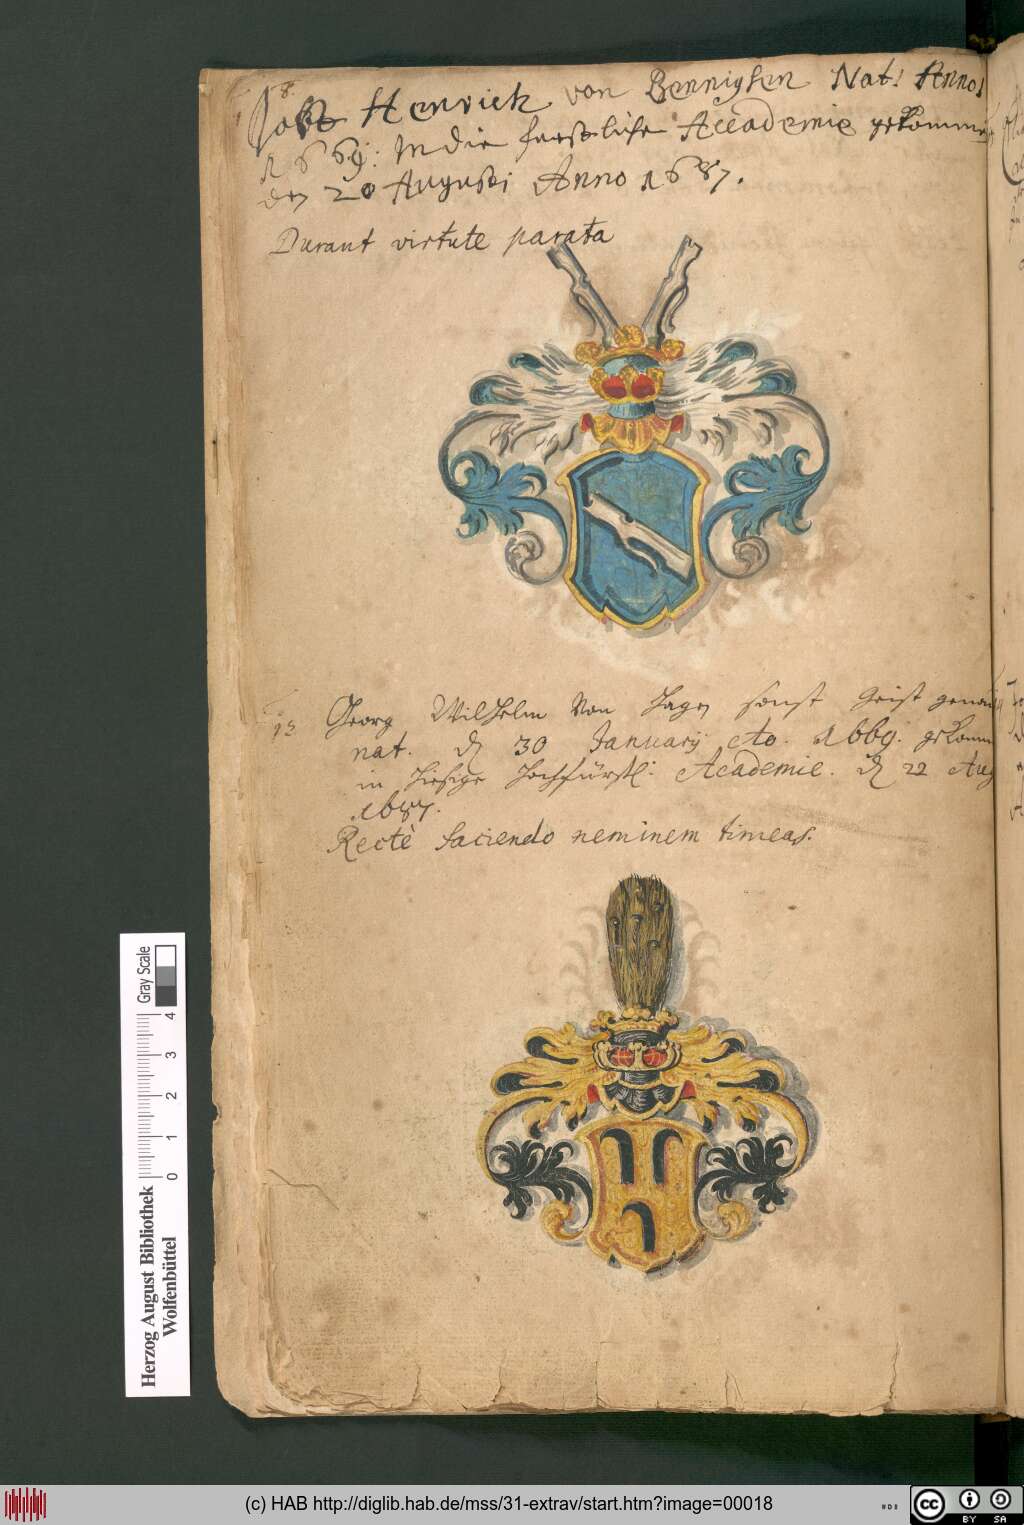 8.
Jobst Henrich von Bennigsen Nat: Anno
1669: In die furstliche Accademie gekommen
den 20 Augusti Anno 1687.
Durant virtute parata
12 Georg Wilhelm Von Hagen sonst Geist genandt
nat. d 30 Januarij Ao. 1669. gekomm
in hiesige Hochfürstl: Academie. d 22 Aug
1687.
Rectè faciendo neminem timeas.
Herzog August Bibliothek
Wolfenbüttel
0 1 2 3 4
Gray Scale
(c) HAB http://diglib.hab.de/mss/31-extrav/start.htm?image=00018
cc BY SA